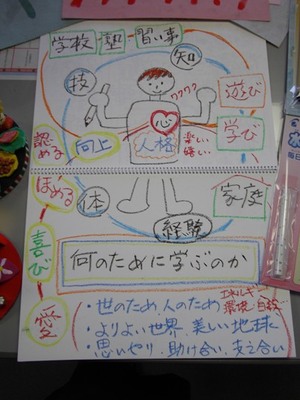 学校 塾 習い事
知
技
ワクワク
遊び
心
学び
認める
向上
人格
楽しい
嬉しい
ほめる
体
家庭
経験
喜び
何のために学ぶのか
愛
・世のため 人のため
環境
・よりよい世界 美しい地球
・思いやり、助け合い、支え合い